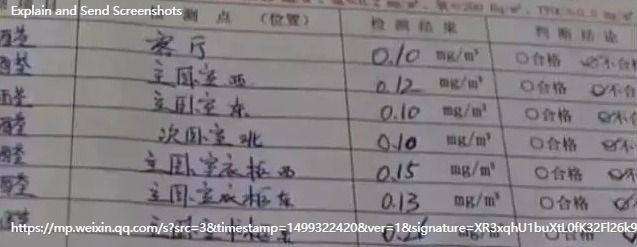 Explain and Send Screenshots
测点 (位置) 检测结果 判断结论
醛 客厅 0.10 mg/m³ ○合格 不合
醛 主卧室西 0.12 mg/m³ ○合格 不合
醛 主卧室东 0.10 mg/m³ ○合格 不
醛 次卧室北 0.10 mg/m³ ○合格 不
醛 主卧室衣柜西 0.15 mg/m³ ○合格 不
醛 主卧室衣柜东 0.13 mg/m³ ○合格 不
https://mp.weixin.qq.com/s?src=3&timestamp=1499322420&ver=1&signature=XR3xqhU1buXtL0fK32Fl26k9